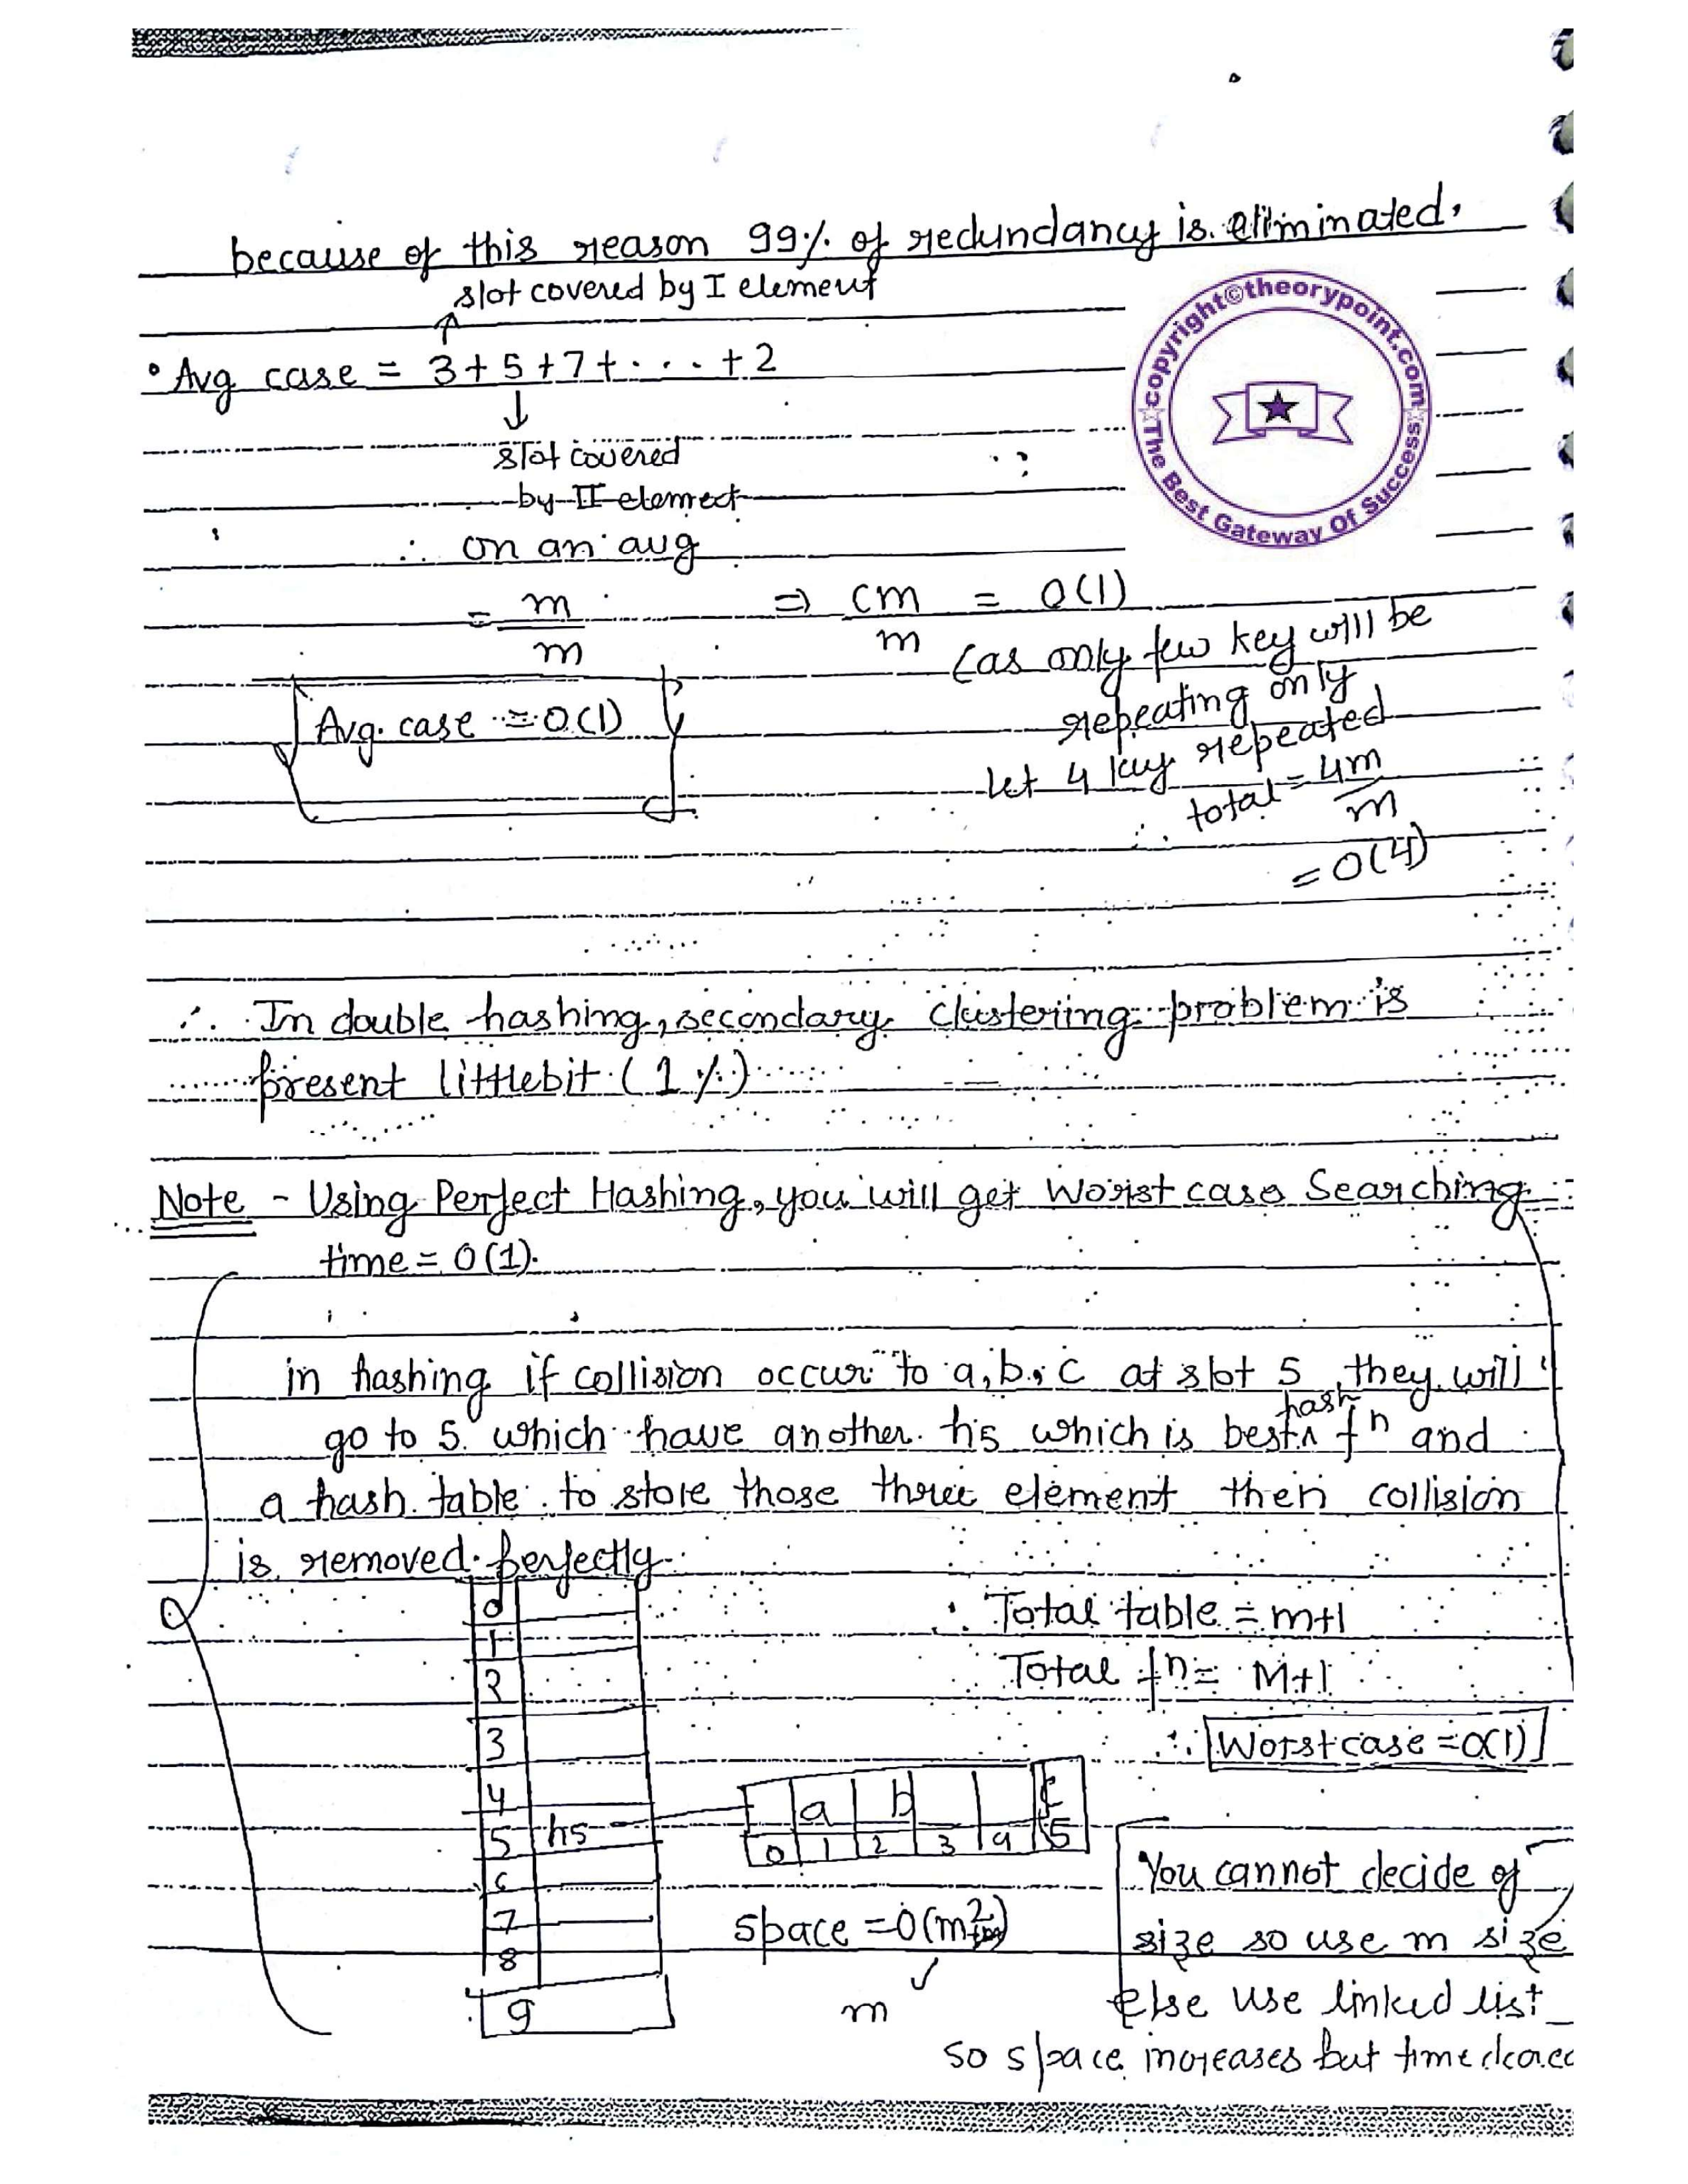 because of this reason 99% of redundancy is eliminated.
slot covered by I element
• Avg case = 3+5+7+ . . . +2
slot covered
by II element
∴ on an avg
= m/m ⇒ cm/m = O(1)
(as only few key will be
repeating only
let 4 key repeated
∴ total = 4m/m
= O(4)
Avg. case = O(1)
∴ In double hashing, secondary clustering problem is
present littlebit (1%)
Note - Using Perfect Hashing, you will get Worst case Searching
time = O(1).
in hashing if collision occur to a, b, c at slot 5 they will
go to 5 which have another h5 which is best hash fn and
a hash table to store those three element then collision
is removed perfectly
0
1
2
3
4
5 h5
6
7
8
9
Total table = m+1
Total fn = M+1
∴ Worst case = O(1)
a b c
0 1 2 3 4 5
space = O(m2
m
You cannot decide of
size so use m size
else use linked list
so space increases but time
copyright©theorypoint.com
The Best Gateway Of Success